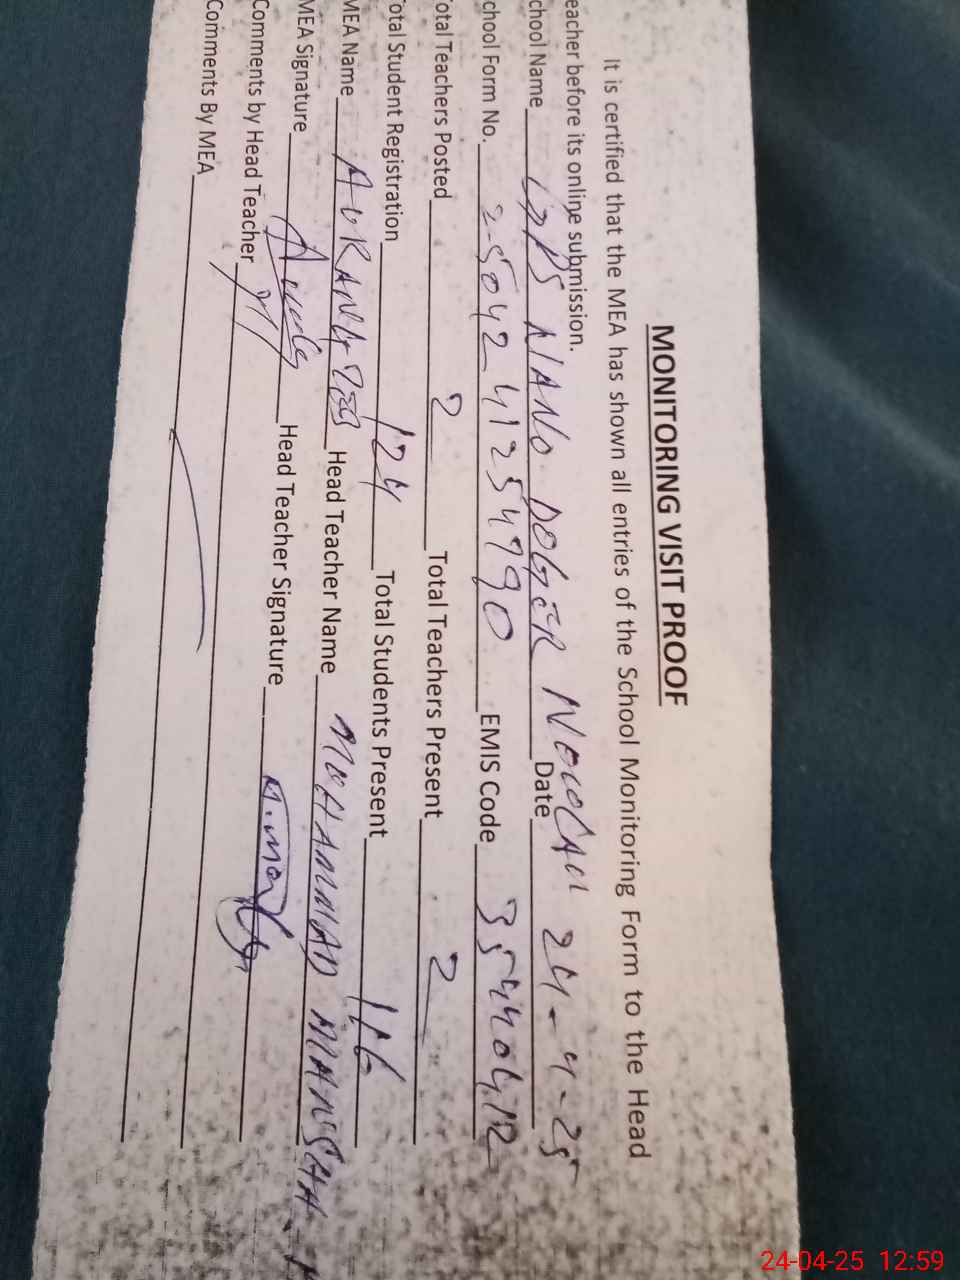 MONITORING VISIT PROOF
It is certified that the MEA has shown all entries of the School Monitoring Form to the Head
eacher before its online submission.
chool Name DOGER NOUOCAU Date 24-4-25
chool Form No. EMIS Code
otal Teachers Posted 2 Total Teachers Present 2
otal Student Registration 124 Total Students Present 116
MEA Name AURANGZEB Head Teacher Name MUHAMMAD
MEA Signature Head Teacher Signature
Comments by Head Teacher
Comments By MEA
24-04-25 12:59